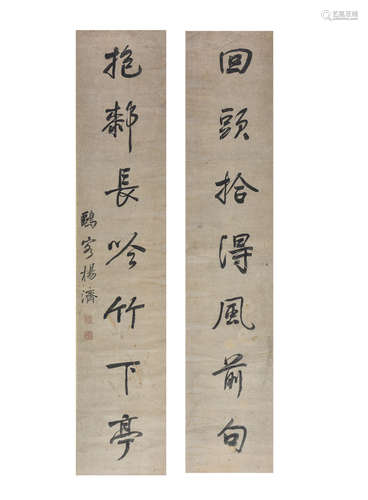 回頭拾得風前句
抱厀長吟竹下亭
鷗客楊濟